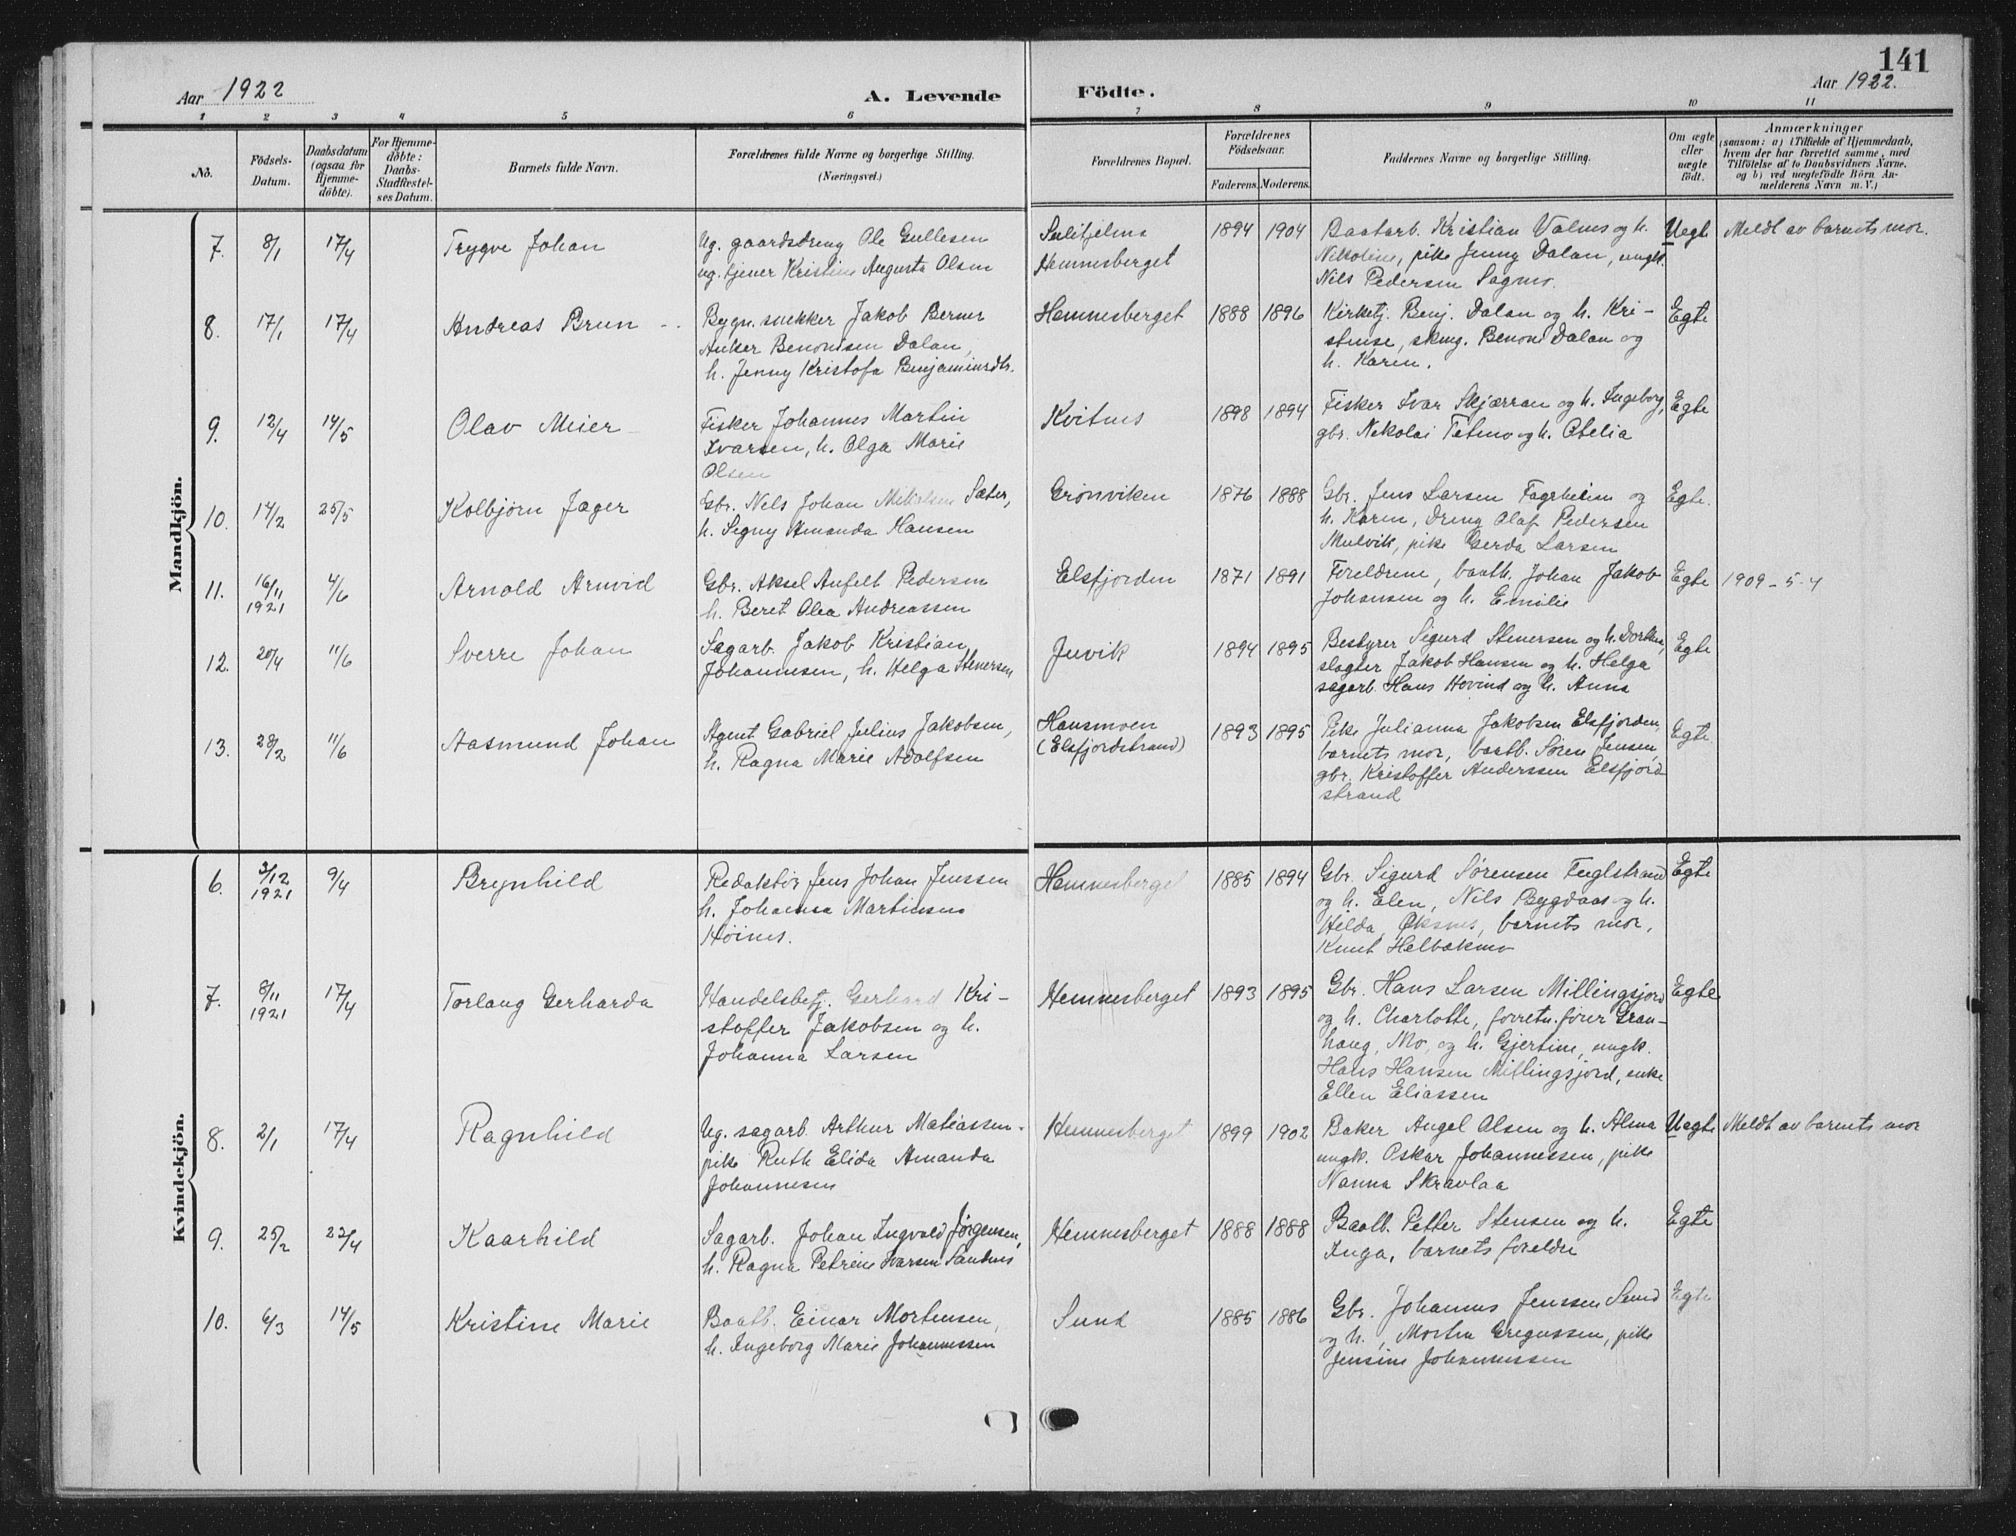 141
Aar 1922
A. Levende
Födte.
Aar 1922.
1 2 3 4 5 6 7 8 9 10 11
No.
Födsels-
Datum.
Daabsdatum
(ogsaa for
Hjemme-
döbte).
For Hjemme-
döbte:
Daabs-
Stadfæstel-
ses Datum.
Barnets fulde Navn.
Forældrenes fulde Navne og borgerlige Stilling.
(Næringsvei.)
Forældrenes Bopæl.
Forældrenes
Födselsaar.
Faderens. Moderens.
Faddernes Navne og borgerlige Stilling.
Om ægte
eller
uægte
födt.
Anmærkninger
(saasom: a) i Tilfælde af Hjemmedaab,
hvem der har forrettet samme, med
Tilföielse af to Daabsvidners Navne,
og b) ved uægtefödte Börn An-
melderens Navn m. V.)
Mandkjön.
7. 8/1 17/4 Trygve Johan
Ug. gaardsdreng Ole Gullesen
ug. tjener Kristine Augusta Olsen
Sulitjelma
Hemnesberget
1894 1904
Baatarb. Kristian Valnes og h.
Nikoline, pike Jenny Dalan, ungk.
Nils Pedersen Sagmo.
Uegte
Meldt av barnets mor.
8. 17/1 17/4 Andreas Brun
Bygn. snekker Jakob Berner
Anker Benonisen Dalan,
h. Jenny Kristofa Benjaminsdtr.
Hemnesberget
1888 1896
Kirketj. Benj. Dalan og h. Kri-
stense, skmg. Benoni Dalan og
h. Karen.
Egte
9. 12/4 14/5 Olav Meier
Fisker Johannes Martin
Ivarsen, h. Olga Marie
Olsen
Kvitnes
1898 1894
Fisker Ivar Skjærran og h. Ingeborg,
gbr. Nekolai Tetmo og h. Otelia
Egte
10. 14/2 25/5 Kolbjørn Jæger
Gbr. Nels Johan Mikalsen Sæter,
h. Signy Amanda Hansen
Grønviken
1876 1888
Gbr. Jens Larsen Fagerheim og
h. Karen, dreng Olaf Pedersen
Mulvik, pike Gerda Larsen
Egte.
11. 16/11 1921 4/6 Arnold Arnvid
Gbr. Aksel Anfelt Pedersen
h. Beret Olea Andreassen
Elsfjorden
1871 1891
Foreldrene, baatb. Johan Jakob
Johansen og h. Emilie
Egte
1909 - 5 - 4
12. 20/4 11/6 Sverre Johan
Sagarb. Jakob Kristian
Johannesen, h. Helga Stenersen
Juvik
1894 1895
Bestyrer Sigurd Stenersen og h. Dorthea,
slagter Jakob Hansen og h. Helga
sagarb. Hans Hovind og h. Anna
Egte
13. 28/2 11/6 Aasmund Johan
Agent Gabriel Julius Jakobsen,
h. Ragna Marie Adolfsen
Hansmoen
(Elsfjordstrand)
1893 1895
Pike Julianna Jakobsen Elsfjorden,
barnets mor, baatb. Søren Jensen,
gbr. Kristoffer Anderssen Elsfjord
strand
Egte.
Kvindekjön.
6. 3/12 1921 9/4 Brynhild
Redaktør Jens Johan Jenssen
h. Johanna Martinsen
Høines.
Hemnesberget
1885 1894
Gbr. Sigurd Sørensen Fuglstrand
og h. Elen, Nils Bygdaas og h.
Hilda, Øksnes, barnets mor,
Knut Helbækmo
Egte
7. 8/11 1921 17/4 Torlaug Gerharda
Handelsbetj. Gerhard Kri-
stoffer Jakobsen og h.
Johanna Larsen
Hemnesberget
1893 1895
Gbr. Hans Larsen Millingsjord
og h. Charlotte, forretn. fører Gran-
haug, Mo, og h. Gjertine, ungk.
Hans Hansen Millingsjord, enke
Ellen Eliassen
Egte
8. 2/1 17/4 Ragnhild
Ug. sagarb. Arthur Matiassen
pike Ruth Elida Amanda
Johannesen
Hemnesberget
1899 1902
Baker Angel Olsen og h. Alma
ungk. Oskar Johannessen, pike
Nanna Skravlaa
Uegte
Meldt av barnets mor
9. 25/2 22/4 Kaarhild
Sagarb. Johan Ingvald Jørgensen,
h. Ragna Petrine Ivarsen Sandnes
Hemnesberget
1888 1888
Baatb. Petter Stensen og h.
Inga, barnets foreldre
Egte
10. 6/3 14/5 Kristine Marie
Baatb. Einar Mortensen,
h. Ingeborg Marie Johannessen
Sund
1885 1886
Gbr. Johannes Jenssen Sund
og h., Morten Gregussen, pike
Jensine Johannessen
Egte